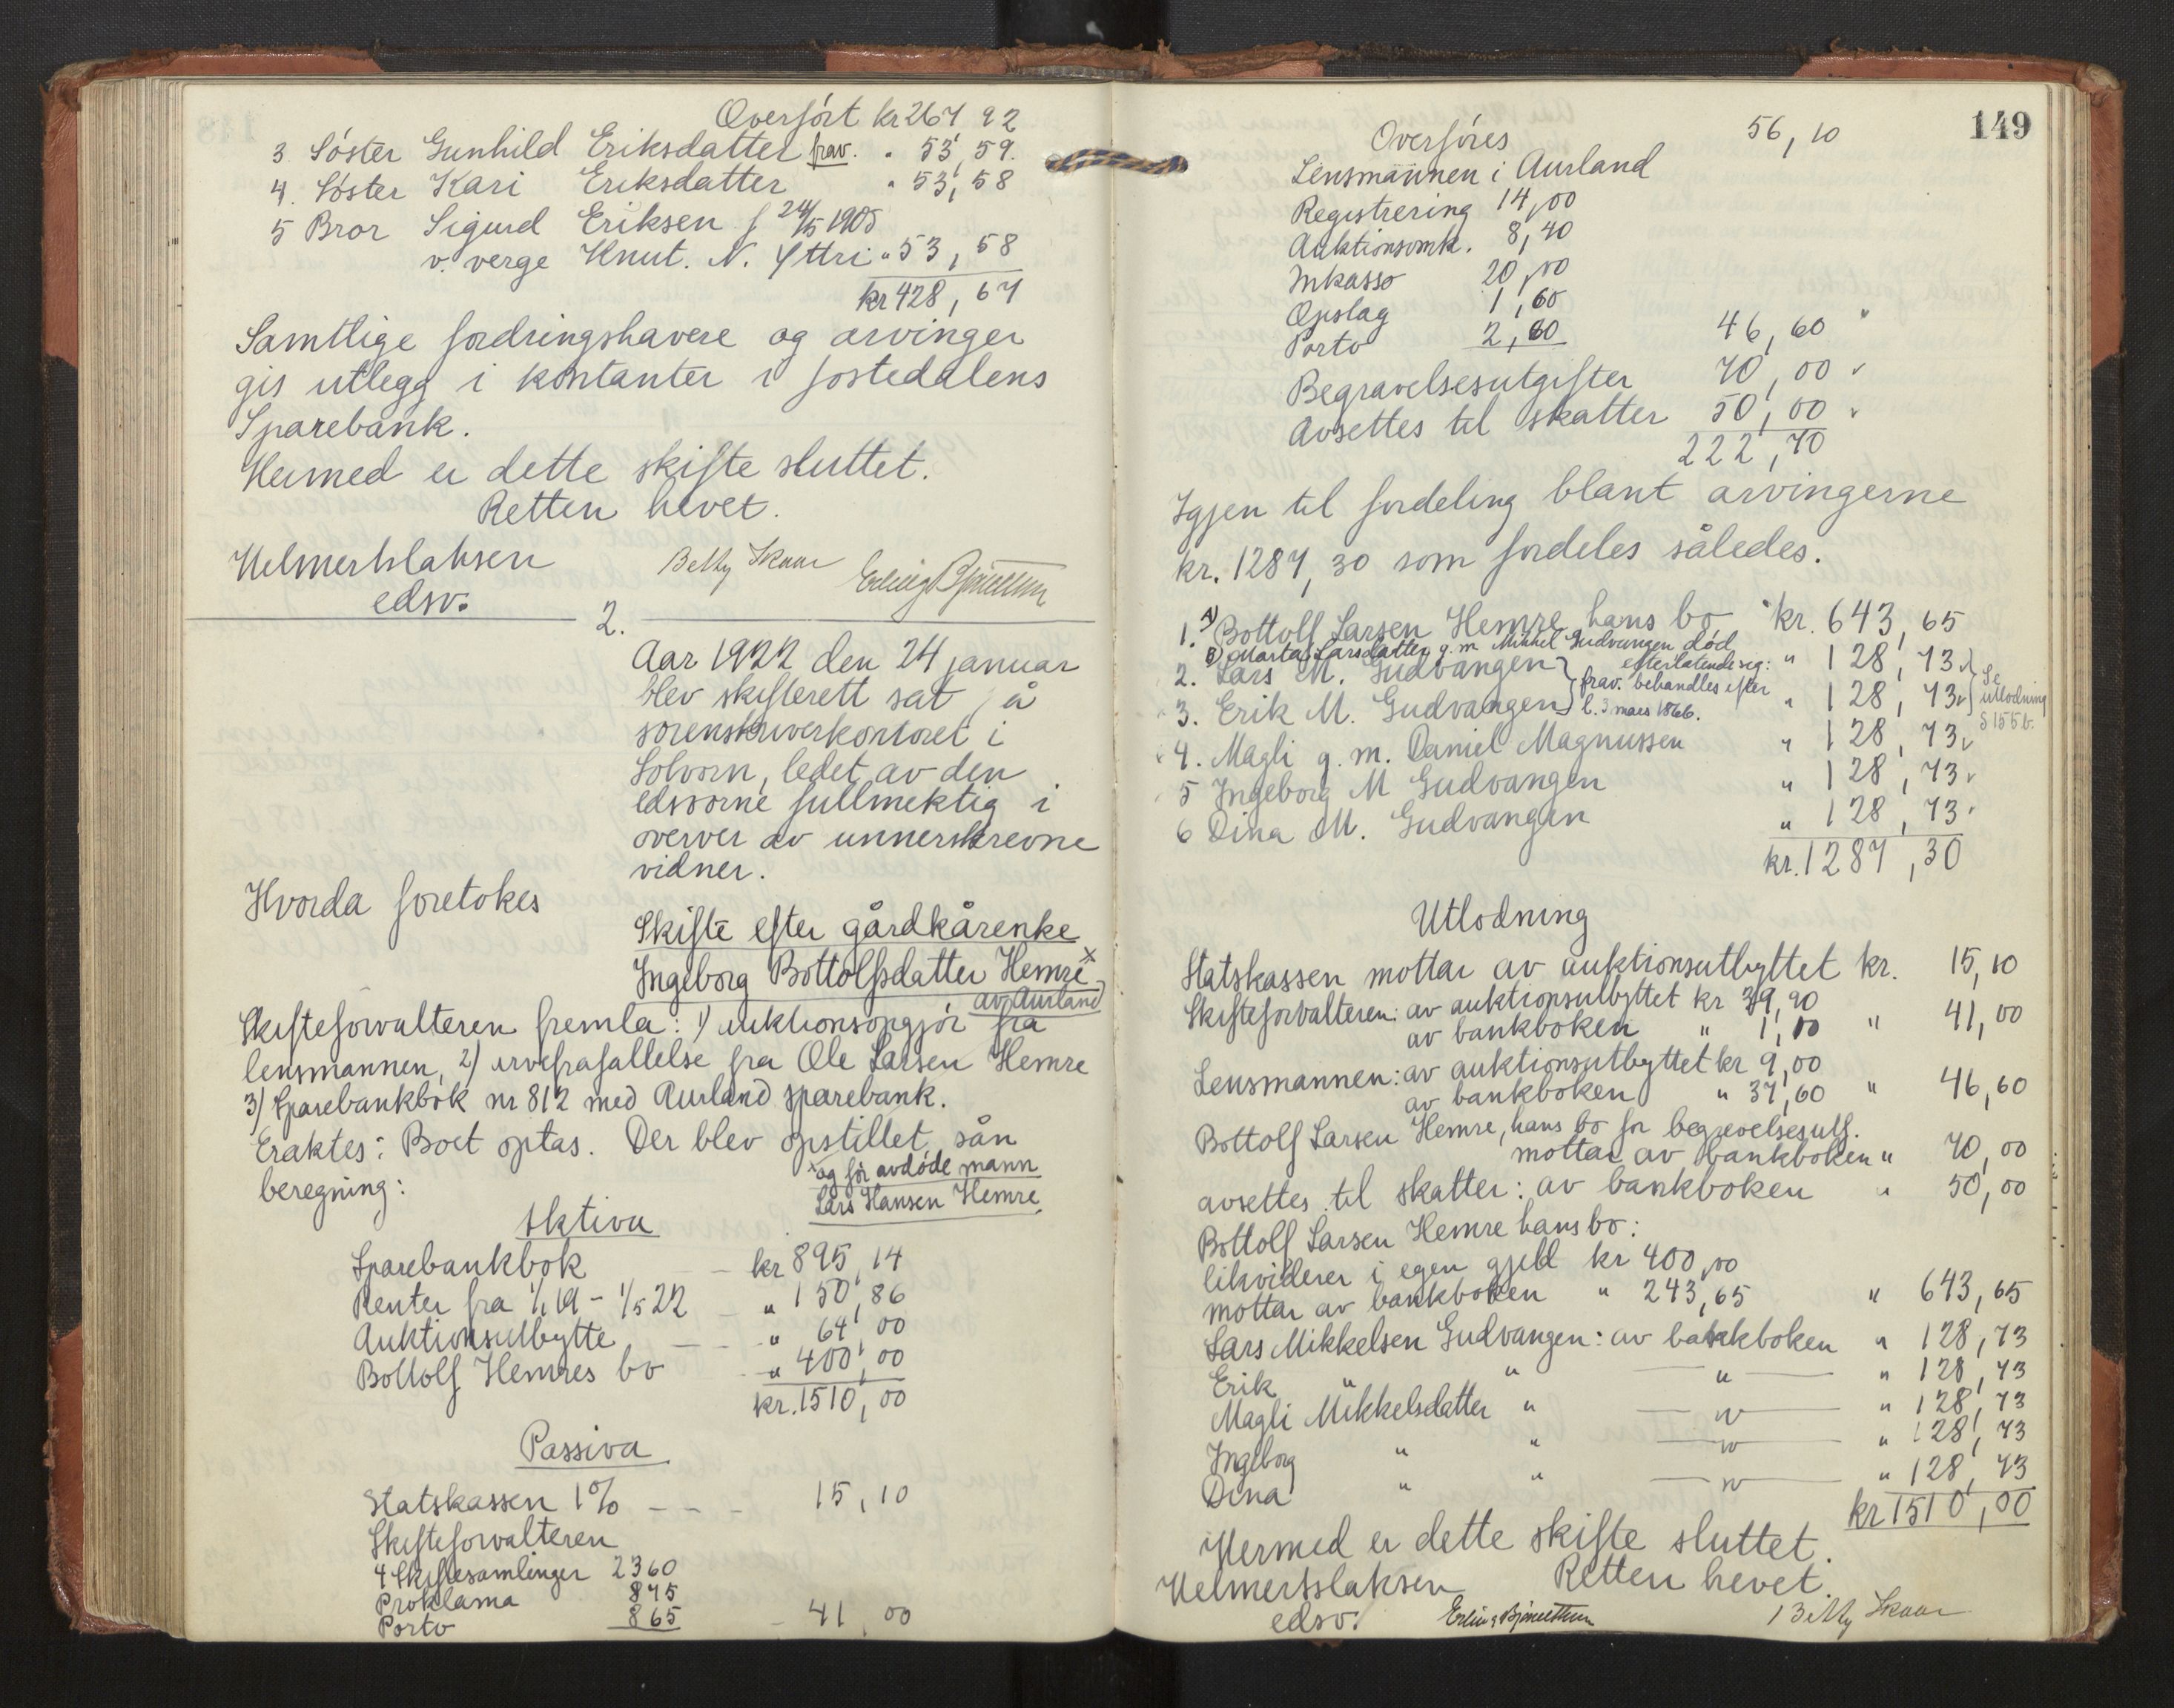 Overført kr 267 92
3. Søster Gunhild Eriksdatter frav. " 53,59.
4. Søster Kari Eriksdatter " 53,58
5 Bror Sigurd Eriksen f 24/5 1905
v. verge Knut. N. Yttri " 53,58
kr 428,67
Samtlige fordringshavere og arvinger
gis utlegg i kontanter i Jostedalens
Sparebank.
Hermed er dette skifte sluttet.
Retten hevet.
edsv.
Betty Skaar
2.
Aar 1922 den 24 januar
blev skifterett sat på
sorenskriverkontoret i
Solvorn, ledet av den
edsvorne fullmektig i
overver av unnerskrevne
vidner.
Hvorda foretokes
Skifte efter gårdkårenke
Ingeborg Bottolfsdatter Hemre x
av Aurland
Skifteforvalteren fremla: 1) auktionsopgjør fra
lensmannen, 2) arvefrafallelse fra Ole Larsen Hemre
3) Sparebankbok nr 812 med Aurland sparebank.
Eraktes: Boet optas. Der blev opstillet sån
x og før avdøde mann
beregning:
Lars Hansen Hemre
Aktiva
Sparebankbok — kr 895,14
Renter fra 1/1 19 - 1/5 22 — " 150,86
Auktionsutbytte — — " 64,00
Bottolf Hemres bo — " 400,00
kr. 1510,00
Passiva
Statskassen 1% — — - 15,10
Skifteforvalteren
4 Skiftesamlinger 2360
Proklama 875
Porto 865 - 41,00
149
Overføres 56,10
Lensmannen i Aurland
Registrering 14,00
Auktionsomk. 8,40
Inkasso 20,00
Opslag 1,60
Porto 2,60 46,60
Begravelsesutgifter 70,00
Avsettes til skatter 50,00
222,70
Igjen til fordeling blant arvingerne
kr. 1287,30 som fordeles således.
1. A) Bottolf Larsen Hemre hans bo kr. 643,65
B) Marta Larsdatter g. m Mikkel Gudvangen død
efterlatende sig:
2. Lars M. Gudvangen " 128,73
frav. behandles efter
3. Erik M. Gudvangen l. 3 mars 1866. " 128,73
Se
utlodning
S 155 b.
4. Magli g. m. Daniel Magnussen " 128,73
5 Ingeborg M Gudvangen " 128,73
6 Dina M. Gudvangen " 128,73
kr. 1287,30
Utlodning
Statskassen mottar av auktionsutbyttet kr. 15,10
Skifteforvalteren: av auktionsutbyttet kr 39,90
av bankboken " 1,10 " 41,00
Lensmannen: av auktionsutbyttet kr 9,00
av bankboken " 37,60 " 46,60
Bottolf Larsen Hemre, hans bo for begrevelsesutg.
mottar av bankboken " 70,00
avsettes til skatter: av bankboken " 50,00
Bottolf Larsen Hemre hans bo:
likviderer i egen gjeld kr 400,00
mottar av bankboken " 243,65 " 643,65
Lars Mikkelsen Gudvangen: av bankboken " 128,73
Erik " " — " — " 128,73
Magli Mikkelsdatter " — " — " 128,73
Ingeborg " " — " — " 128,73
Dina " " — " — " 128,73
kr 1510,00
Hermed er dette skifte sluttet.
Retten hevet.
edsv.
Betty Skaar